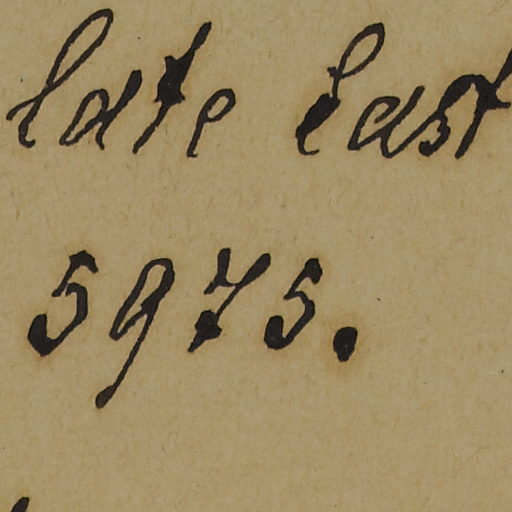 late East
5975.